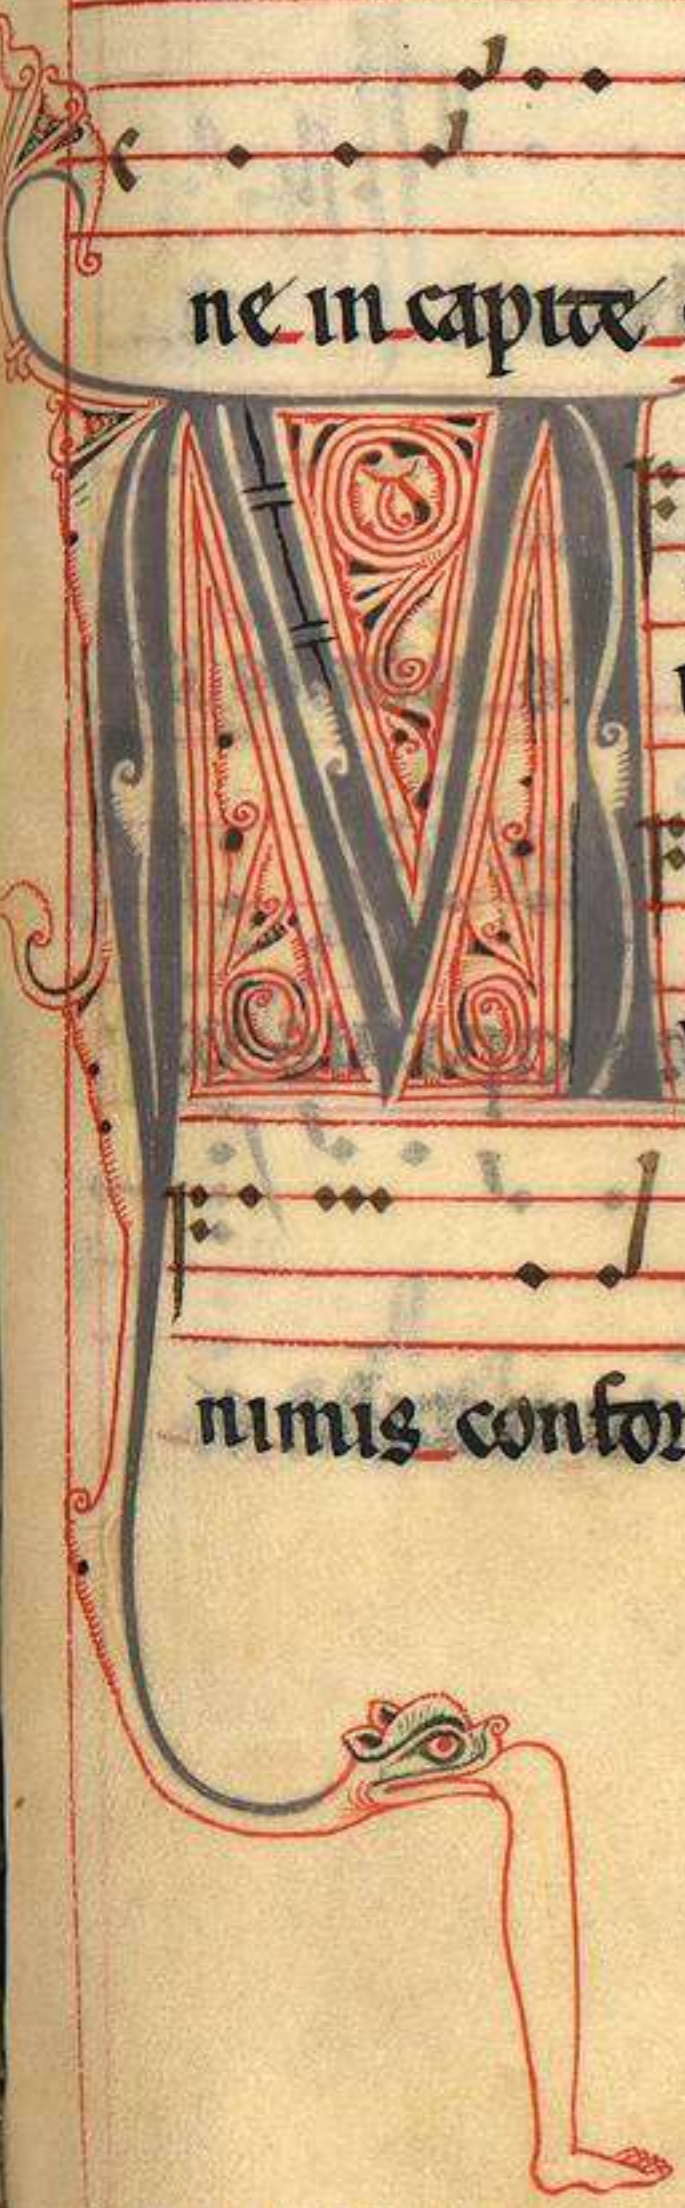 ne in capite
M
nimis confor